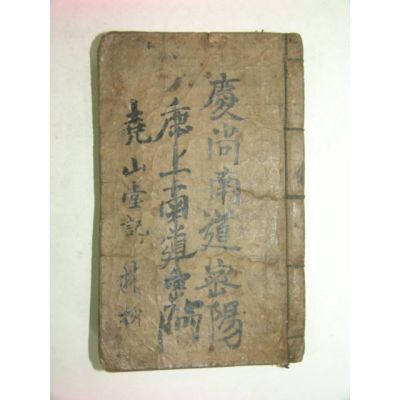 慶尚南道密陽
康上南道密陽
堯山堂記